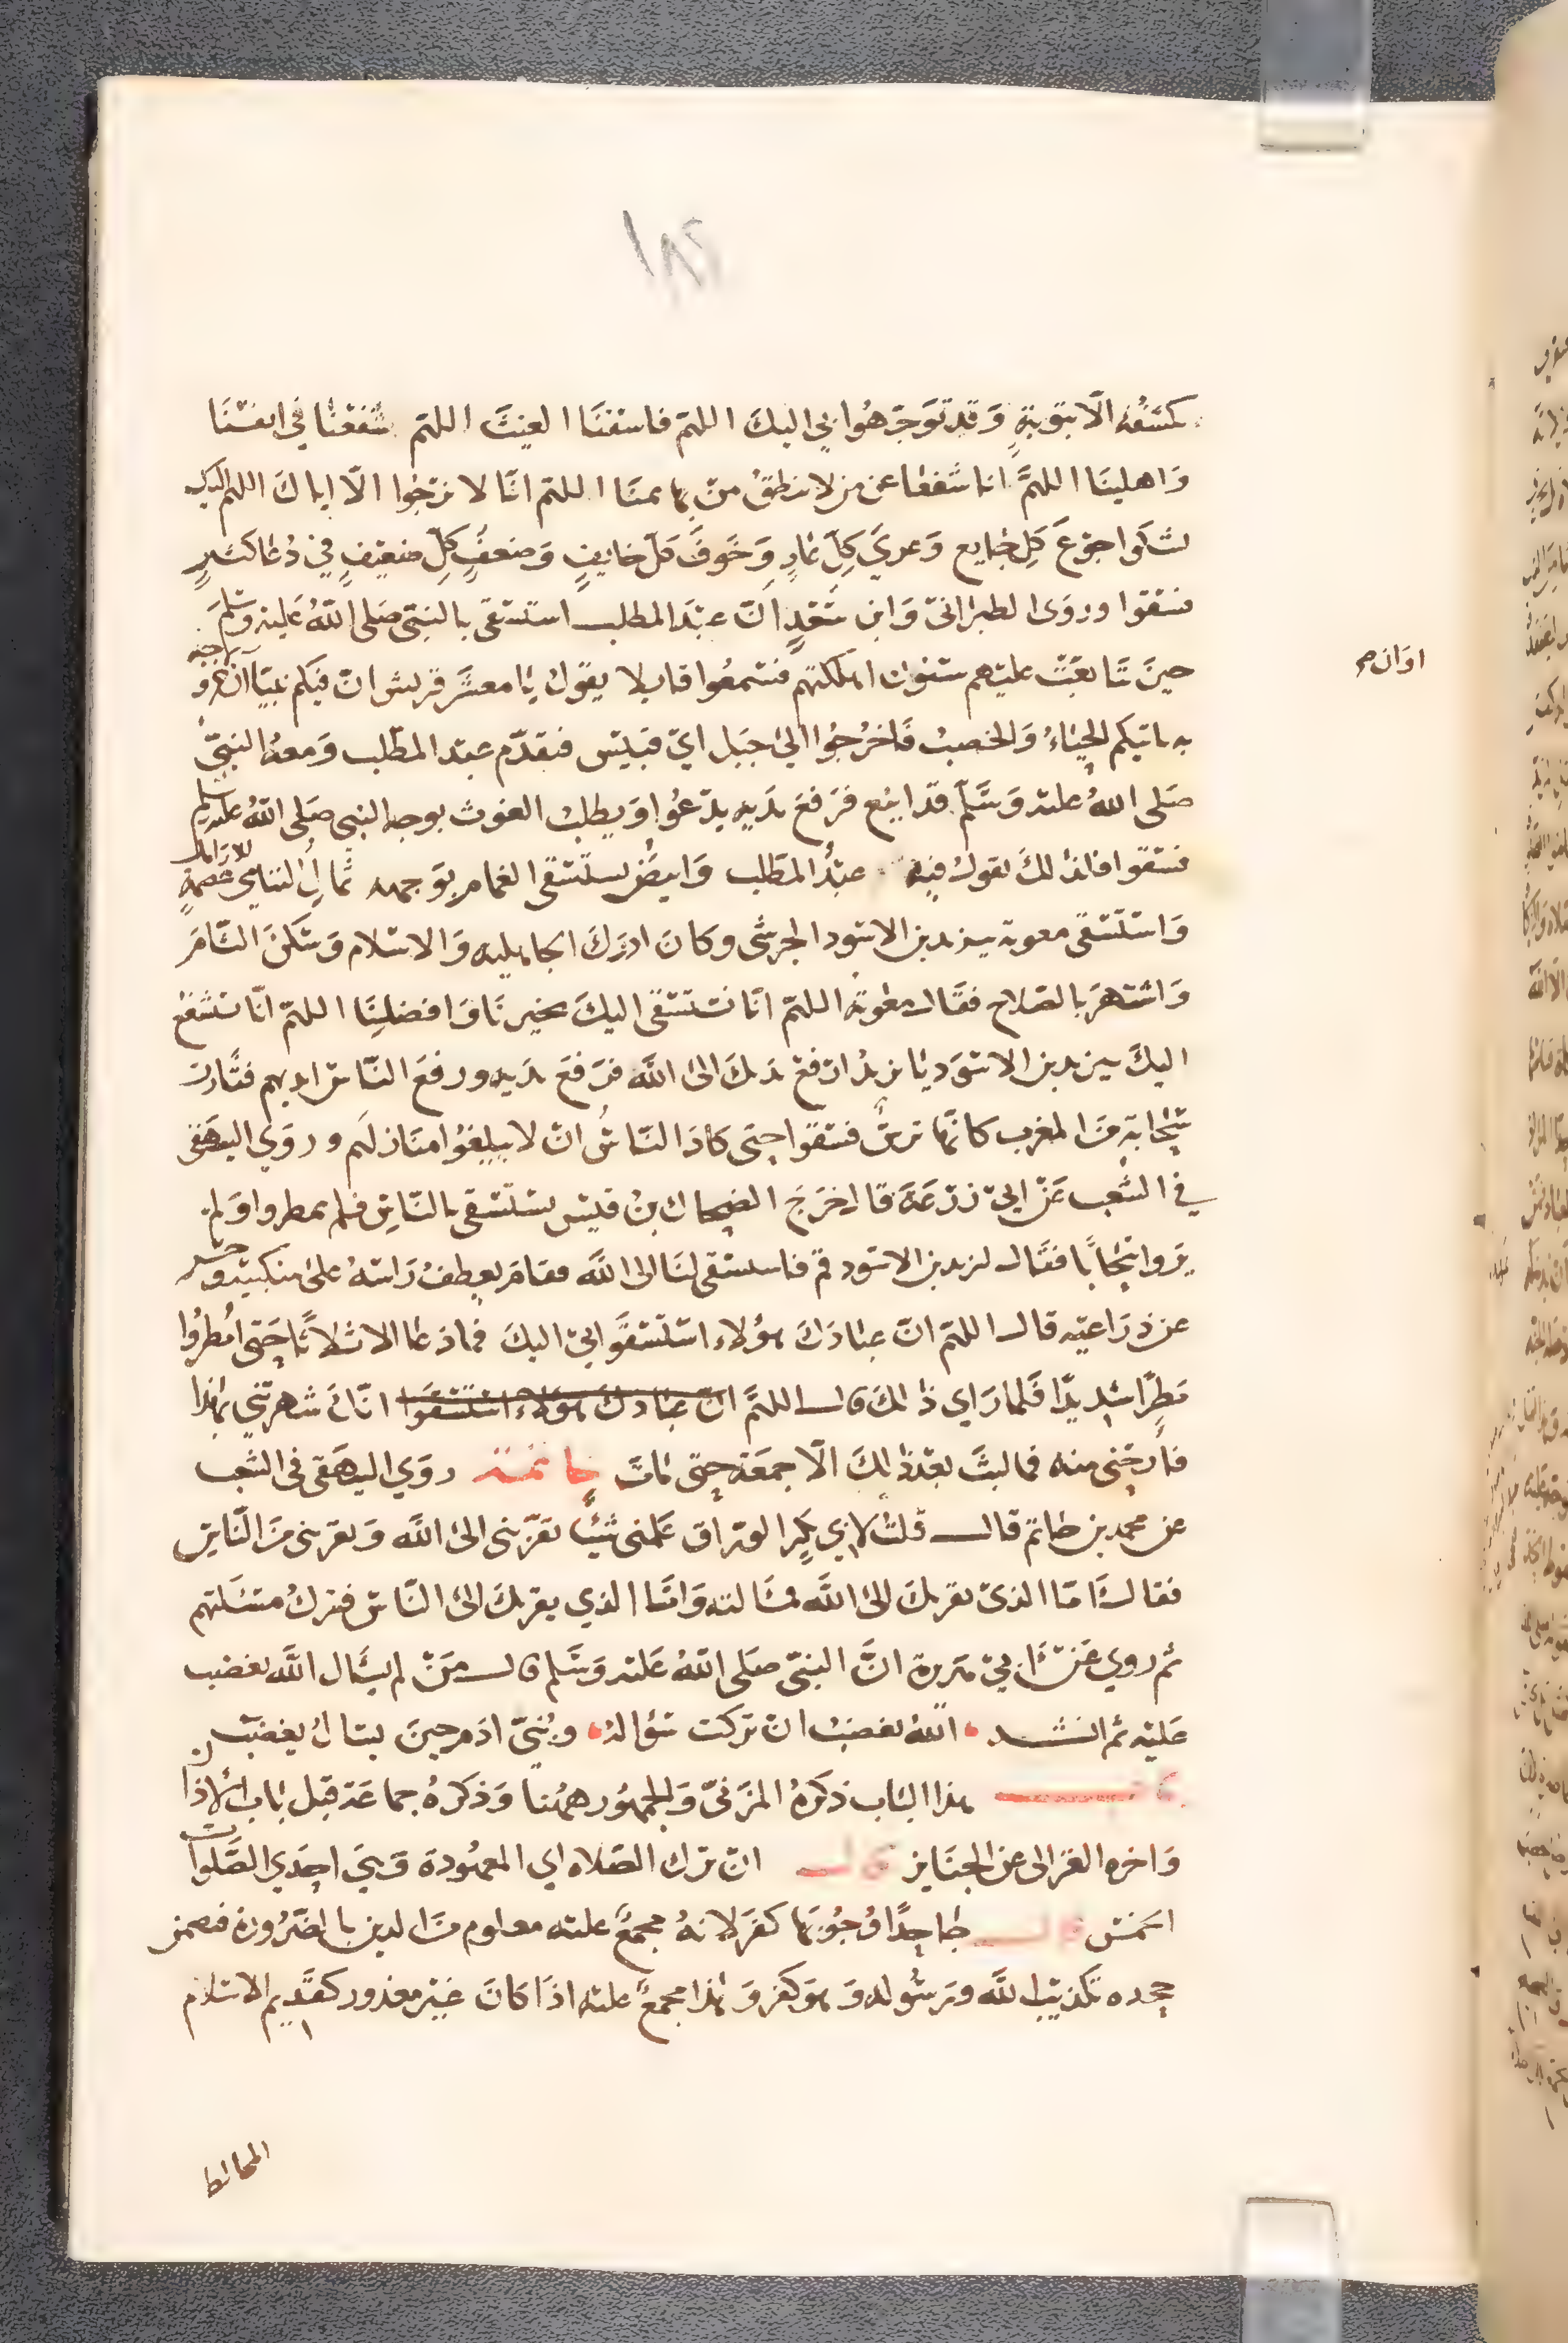 ١٨٢
كشفه الا بتوبة وقد توجهوا بي اليك اللهم فاسقنا الغيث اللهم شفعنا في انفسنا
واهلينا اللهم انا شفعنا عن من لا ينطق من بهايمنا اللهم انا لا نرجوا الا اياك اللهم اليك
نشكوا جوع كل جايع وعري كل عار وخوف كل خايف وضعف كل ضعيف في دعا كثير
فسقوا وروى الطبراني وابن سعد ان عبد المطلب استسقى بالنبي صلى الله عليه وسلم
حين تتابعت عليهم سنوات اهلكتهم فسمعوا قايلا يقول يا معشر قريش ان فيكم نبيا آن خروجه
به ياتيكم الحياء والخصب فاخرجوا الى جبل ابي قبيس فتقدم عبد المطلب ومعه النبي
صلى الله عليه وسلم قد ايفع فرفع يديه يدعوا ويطلب الغوث بوجه النبي صلى الله عليه وسلم
فسقوا فلذلك يقول فيه عبد المطلب وابيض يستسقى الغمام بوجهه ثمال اليتامى عصمة للارامل
واستسقى معوية بيزيد بن الاسود الجرشي وكان ادرك الجاهليه والاسلام وسكن الشام
واشتهر بالصلاح فقال معوية اللهم انا نستسقي اليك بخيرنا وافضلنا اللهم انا نستشفع
اليك بيزيد بن الاسود يا يزيد ارفع يدك الى الله فرفع يديه ورفع الناس ايديهم فثارت
سحابة من المغرب كانها ترس فسقوا حتى كاد الناس ان لا يبلغوا منازلهم وروي البيهقي
في الشعب عن ابي زرعة قال خرج الضحاك بن قيس يستسقي بالناس فلم يمطروا ولم
يروا سحابا فقال ليزيد بن الاسود قم فاستسقي لنا الى الله فقام يعطف راسه على منكبيه وحسر
عن ذراعيه قال اللهم ان عبادك هؤلاء استسقوا بي اليك فما دعا الا ثلاثا حتى امطروا
مطرا شديدا فلما راي ذلك قال اللهم ان عبادك هؤلاء استسقوا انك شهرتني بهذا
فارحني منه فما لبث بعد ذلك الا جمعة حتى مات خاتمة روي البيهقي في الشعب
عن محمد بن حاتم قال قلت لابي بكر الوراق علمني شيئا يقربني الى الله ويقربني من الناس
فقال اما الذي يقربك الى الله فمسالته واما الذي يقربك الى الناس فترك مسئلتهم
ثم روي عن ابي هريرة ان النبي صلى الله عليه وسلم قال من لم يسال الله يغضب
عليه ثم انشد الله يغضب ان تركت سؤاله وبني ادم حين يسال يغضب
هذا الباب ذكره المزني والجمهور ههنا وذكره جماعة قبل باب الاذان
واخره الغزالى عن الجنايز قال ان ترك الصلاه اي المعهودة وهي احدي الصلوات
الخمس قال جاحدا وجوبها كفر لانه مجمع عليه معلوم من الدين بالضرورة فتضمن
جحده تكذيب الله ورسوله وهو كفر وهذا مجمع عليه اذا كان غير معذور كقديم الاسلام
المخالط
اوان صح